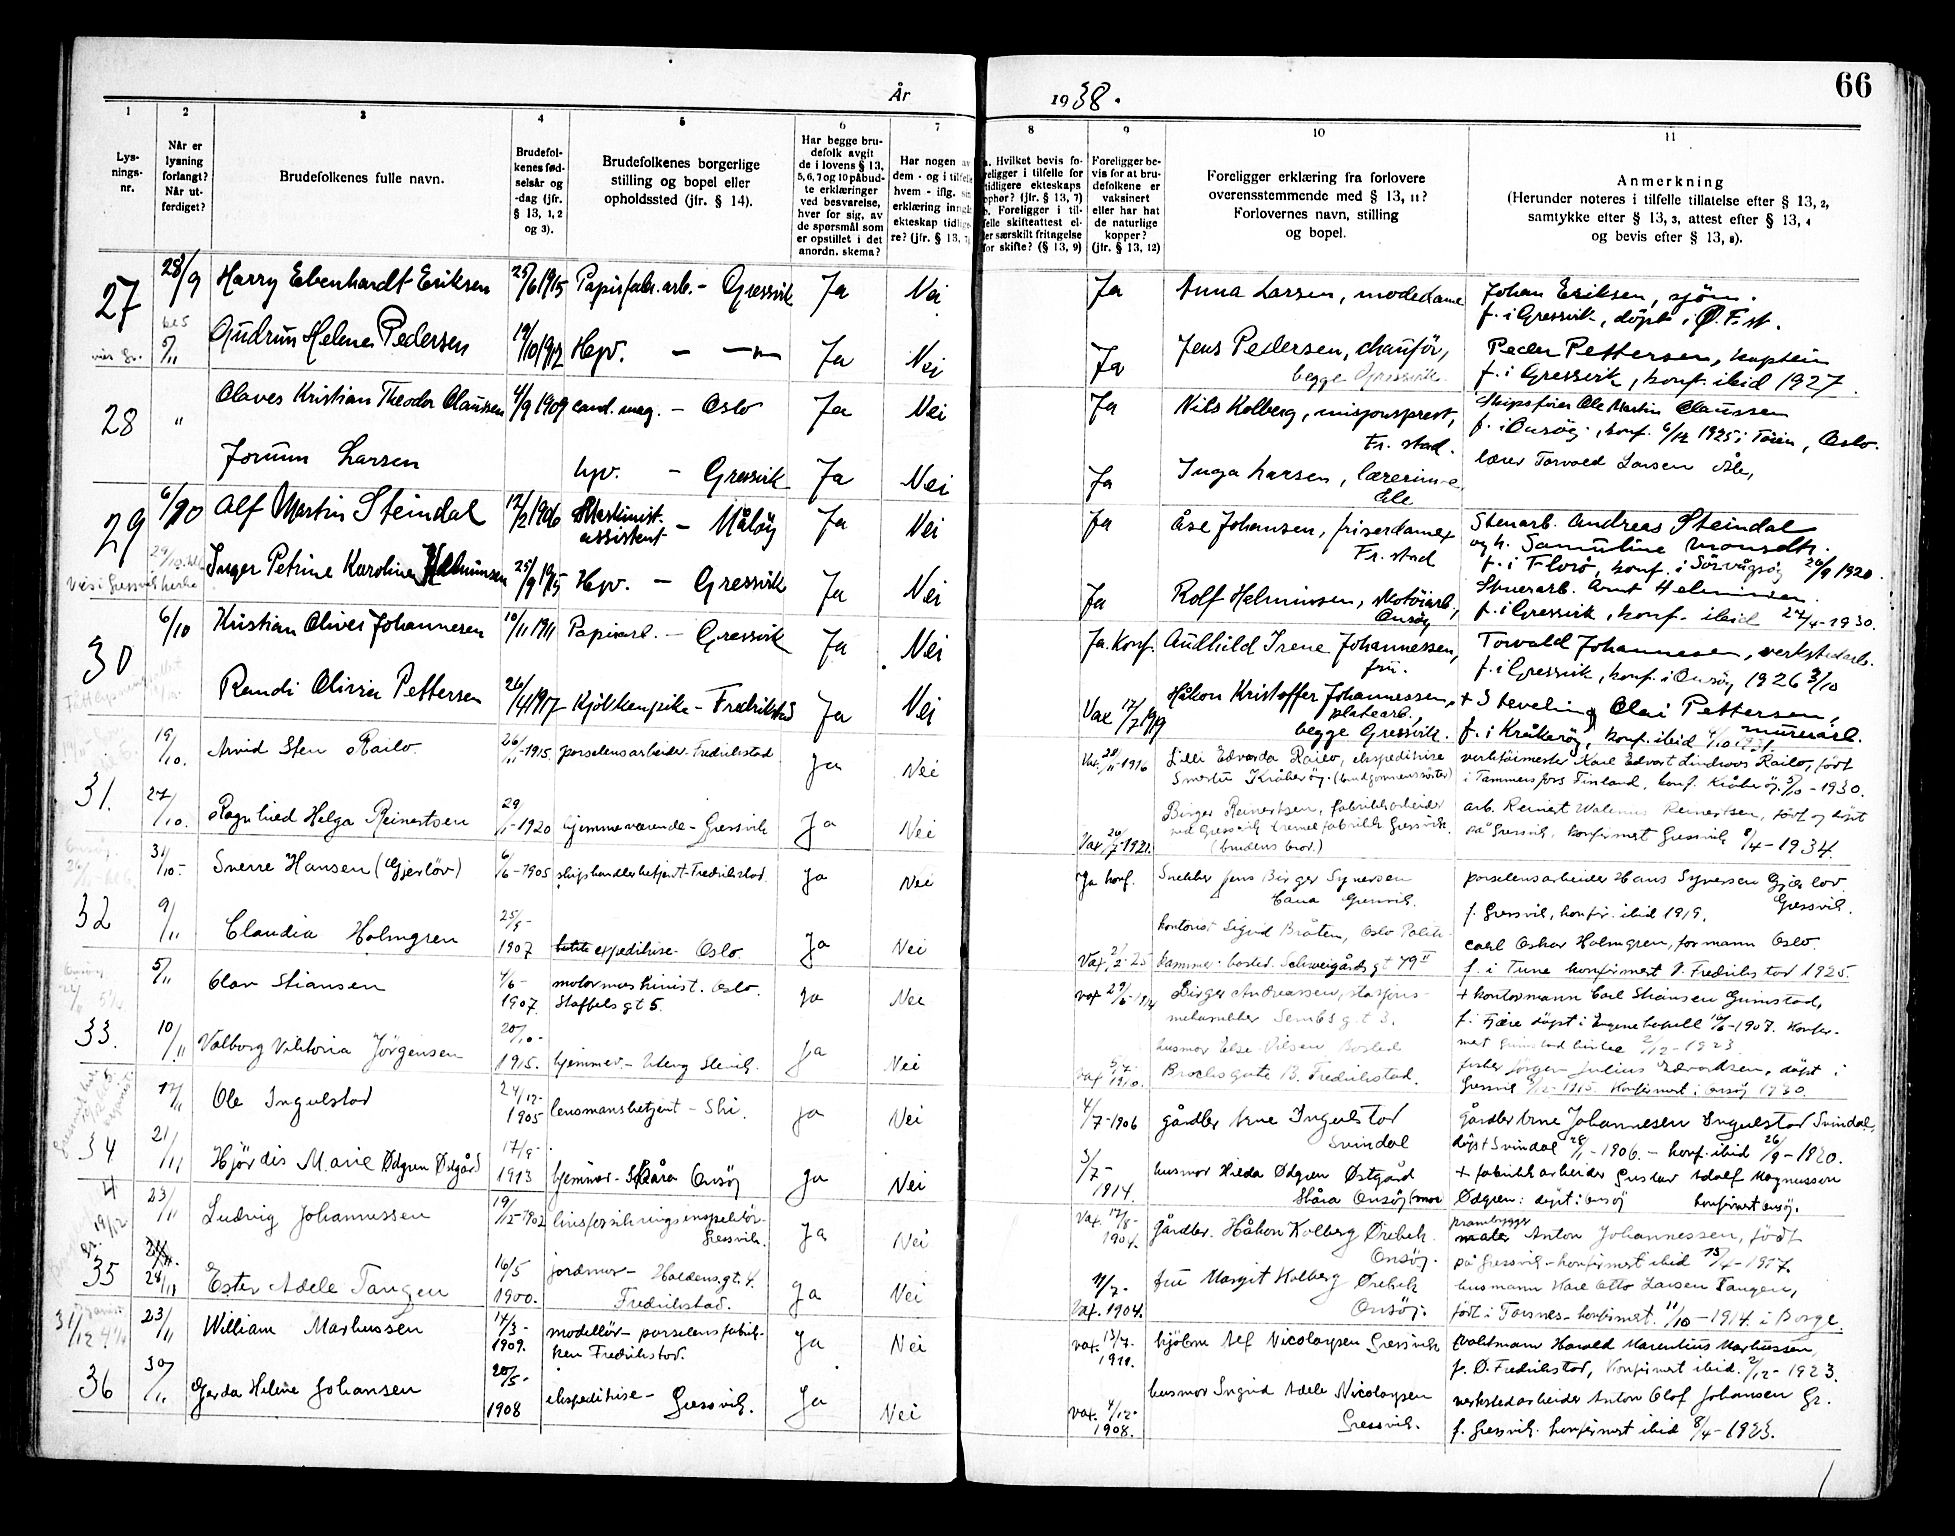 66
År 1938.
1 2 3 4 5 6 7 8 9 10 11
Lys-
nings-
nr.
Når er
lysning
forlangt?
Når ut-
ferdiget?
Brudefolkenes fulle navn.
Brudefol-
kenes fød-
selsår og
-dag (jfr.
§ 13, 1, 2
og 3).
Brudefolkenes borgerlige
stilling og bopel eller
opholdssted (jfr. § 14).
Har begge bru-
defolk avgit
de i lovens § 13,
5, 6, 7 og 10 påbud-
te erklæringer
ved besvarelse,
hver for sig, av
de spørsmål som
er opstillet i det
anordn. skema?
Har nogen av
dem - og i tilfelle
hvem - iflg. sin
erklæring inngått
ekteskap tidlige-
re? (jfr. § 13,
a. Hvilket bevis fo-
religger i tilfelle for
tidligere ekteskaps
ophør? (jfr. § 13, 7)
b. Foreligger i til-
felle skifteattest el-
ler særskilt fritagelse
for skifte? (§ 13, 9)
Foreligger be-
vis for at bru-
defolkene er
vaksinert
eller har hat
de naturlige
kopper?
(jfr. § 13, 12)
Foreligger erklæring fra forlovere
overensstemmende med § 13, 11?
Forlovernes navn, stilling
og bopel.
Anmerkning
(Herunder noteres i tilfelle tillatelse efter § 13, 2,
samtykke efter § 13, 3, attest efter § 13, 4
og bevis efter § 13, 8).
27 28/9 Harry Ebenhardt Eriksen 25/6 1915 Papirfabr.arb. - Gressvik Ja Nei Ja Anna Larsen, modedame Johan Eriksen, sjøm.
f. i Gressvik, døpt i Ø. F.st.
5/11 Gudrun Helene Pedersen 19/10 1912 Hpv. - -"- Ja Nei Ja Jens Pedersen, chauför,
begge Gressvik.
Peder Pettersen, kaptein
f. i Gressvik, konf. ibid 1927.
28 " Claves Kristian Theodor Claussen 4/9 1909 cand. mag. - Oslo Ja Nei Ja Nils Kolberg, misjonsprest,
Fr. stad.
Skipsfører Ole Martin Claussen
f. i Onsøy, konf. 6/12 1925 i Tøien, Oslo.
Jorunn Larsen hpv. - Gressvik Ja Nei Ja Inga Larsen, lærerinne,
Ele
lærer Torvald Larsen Åle,
29 6/10 Alf Martin Steindal 12/2 1906 Maskinist-
assistent - Måløy Ja Nei Ja Åse Johansen, friserdame,
Fr. stad
Stenarb. Andreas Steindal
og h. Samuline Monsdtr.
f. i Florø, konf. i Sörvågsöy 26/9 1920.
Inger Petrine Karoline Helminsen 25/9 1915 Hpv. - Gressvik Ja Nei Ja Rolf Helminsen, skotöiarb,
Onsøy
Stuerarb. Arnt Helminsen.
f. i Gressvik, konf. ibid 27/4-1930.
Vies i Gressvik kirke
30 6/10 Kristian Oliver Johannesen 10/11 1911 Papirarb. - Gressvik Ja Nei Ja. Konf. Audhild Irene Johannessen,
frü.
Torvald Johannesen, verkstedarb.
f. i Gressvik, konf. i Onsøy 1926 3/10
Randi Olivia Pettersen 26/4 1917 Kjökkenpike - Fredrikstad Ja Nei Vax 17/7 1919 Håkon Kristoffer Johannessen,
platearb.,
begge Gressvik.
+ Steveling Olai Pettersen,
murerarb.
f. i Kråkerøy, konf. ibid 4/10 1931.
31. 19/10. Arvid Sten Railo. 26/11-1915. porselensarbeider - Fredrikstad Ja Nei Vax. 28/11-1916 Lilli Edvarda Railo, ekspeditrise
Smertu Kråkerøy. (brudgommens søster)
verktöimester Karl Edvart Lindroos Railo, født
i Tammersfors Finland, konf. Kråkerøy 5/10-1930.
27/10. Ragnhild Helga Reinertsen 29/1-1920 hjemmeværende - Gressvik Ja Nei Vax 26/7-1921. Birger Reinertsen, fabrikkarbeider
ved Gressvik tremefabrikk Gressvik.
(brudens bror.)
arb. Reinert Walemus Reinertsen, født og døpt
på Gressvik, konfirmert Gressvik 8/4-1934.
32 31/10- Sverre Hansen (Gjerløv) 6/6-1905 skipshandlerbetjent - Fredrikstad. Ja Nei Ja konf. Snekker Jens Birger Syversen
Gressvik.
porselensarbeider Hans Syversen Gjerløv
Gressvik.
f. Gressvik, konfir. ibid 1919.
9/11 Claudia Holmgren 25/5-
1907 ekspeditrise - Oslo. Ja Nei Vax. 2/2-25 kontorist Sigrid Bråten, Oslo Politi-
kammer. bosted. Schweigårds gt 79 II
Carl Oskar Holmgren, formann Oslo.
f. i Tune konfirmert V. Fredrikstad 1925.
33. 5/11 Olav Stiansen 4/6-
1907. motormaskinist. Oslo.
Staffelsgt 5. Ja Nei Birger Andreassen, stasjons-
Sembs gt 3.
+ kontormann Carl Stiansen Grimstad,
f. Fjære døpt i Engene kapell 16/6-1907. Konfir-
mert Grimstad kirke 2/12-1923
10/11 Valborg Viktoria Jörgensen 20/10-
1915. hjemmev. - Utevg Slevik. Ja Nei husmor Else Olsen bosted
Brochsgate B. Fredrikstad.
fisker Jörgen Julius Edvardsen, døpt i
Gressvik 1915. Konfirmert i Onsøy 1930.
34 17/11 Ole Ingulstad 24/12-
1905 lensmannsbetjent - Ski. Ja Nei 4/7-1906 gårdbr. Arne Ingulstad
Svindal
Gårdbr Arne Johannesen Ingulstad Svindal,
døpt Svindal 28/1-1906. - konf. ibid 26/9-1920.
21/11 Hjördis Marie Ødgren Østgård 17/8-
1913 hjemmev - Skåra Onsöy Ja Nei 3/7-
1914. husmor Hilda Ødgren Østgård
Skåra Onsöy (mor
+ fabrikkarbeider Gustav Adolf Magnusson
Ødgren: døpt i Onsøy konfirmert Onsøy.
35 23/11 Ludvig Johannessen 19/12-1902 livsforsikringsinspektör -
Gressvik. Ja Nei Vax. 17/8-
1904. gårdbr. Håkon Kolberg Ørebek
Onsöy.
prambygger
Anton Johannessen, født
på Gressvik - konfirmert ibid 15/4-1917.
28/11 Ester Adele Tangen 16/5
1900. jordmor - Haldensgt. 4.
Fredrikstad. Ja Nei Vax. 1904. fru Margit Kolberg Ørebek
Onsöy.
husmann Karl Otto Larsen Tangen,
født i Torsnes - konfirmert 11/10-1914. i Borge.
36 23/11 William Markussen 14/3-
1909. modellör - porselensfabrik-
ken Fredrikstad. Ja Nei vax. 13/7-
kjøbm Alf Nicolaysen Gressvik
Valdtmann Harald Marentius Markussen,
f. Ø. Fredrikstad, Konfirmert ibid. 2/12-1923.
30/11 Gerda Helene Johansen 20/5-
1908 ekspeditrise - Gressvik. Ja Nei vax. 4/12-
1908. husmor Ingrid Adele Nicolaysen
Gressvik.
verkstedarbeider Anton Olof Johansen Gr.
f. Gressvik. konfirmert ibid 8/4-1923.